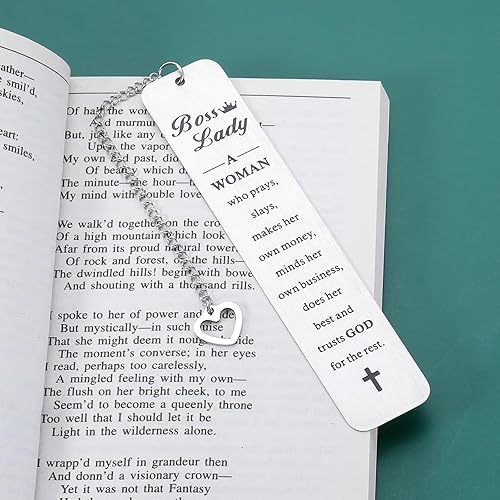 eather—
e smil'd,
skies,
eart:
y smiles,
Of half the wor
And murmur
But, just like any
Upon the vapor
My own past, did
Of being which di
The minute—the hour—t
My mind with double love
We walk'd together on the cro
Of a high mountain which look
Afar from its proud natural tower
Of rock and forest, on the hills—
The dwindled hills! begirt with bowe
And shouting with a thousand rills.
I spoke to her of power and pr
But mystically—in such guise
That she might deem it nought beside
The moment's converse; in her eyes
I read, perhaps too carelessly,
A mingled feeling with my own—
The flush on her bright cheek, to me
Seem'd to become a queenly throne
Too well that I should let it be
Light in the wilderness alone.
I wrapp'd myself in grandeur then
And donn'd a visionary crown—
Yet it was not that Fantasy
Boss
Lady
A
WOMAN
who prays,
slays,
makes her
own money,
minds her
own business,
does her
best and
trusts GOD
for the rest.